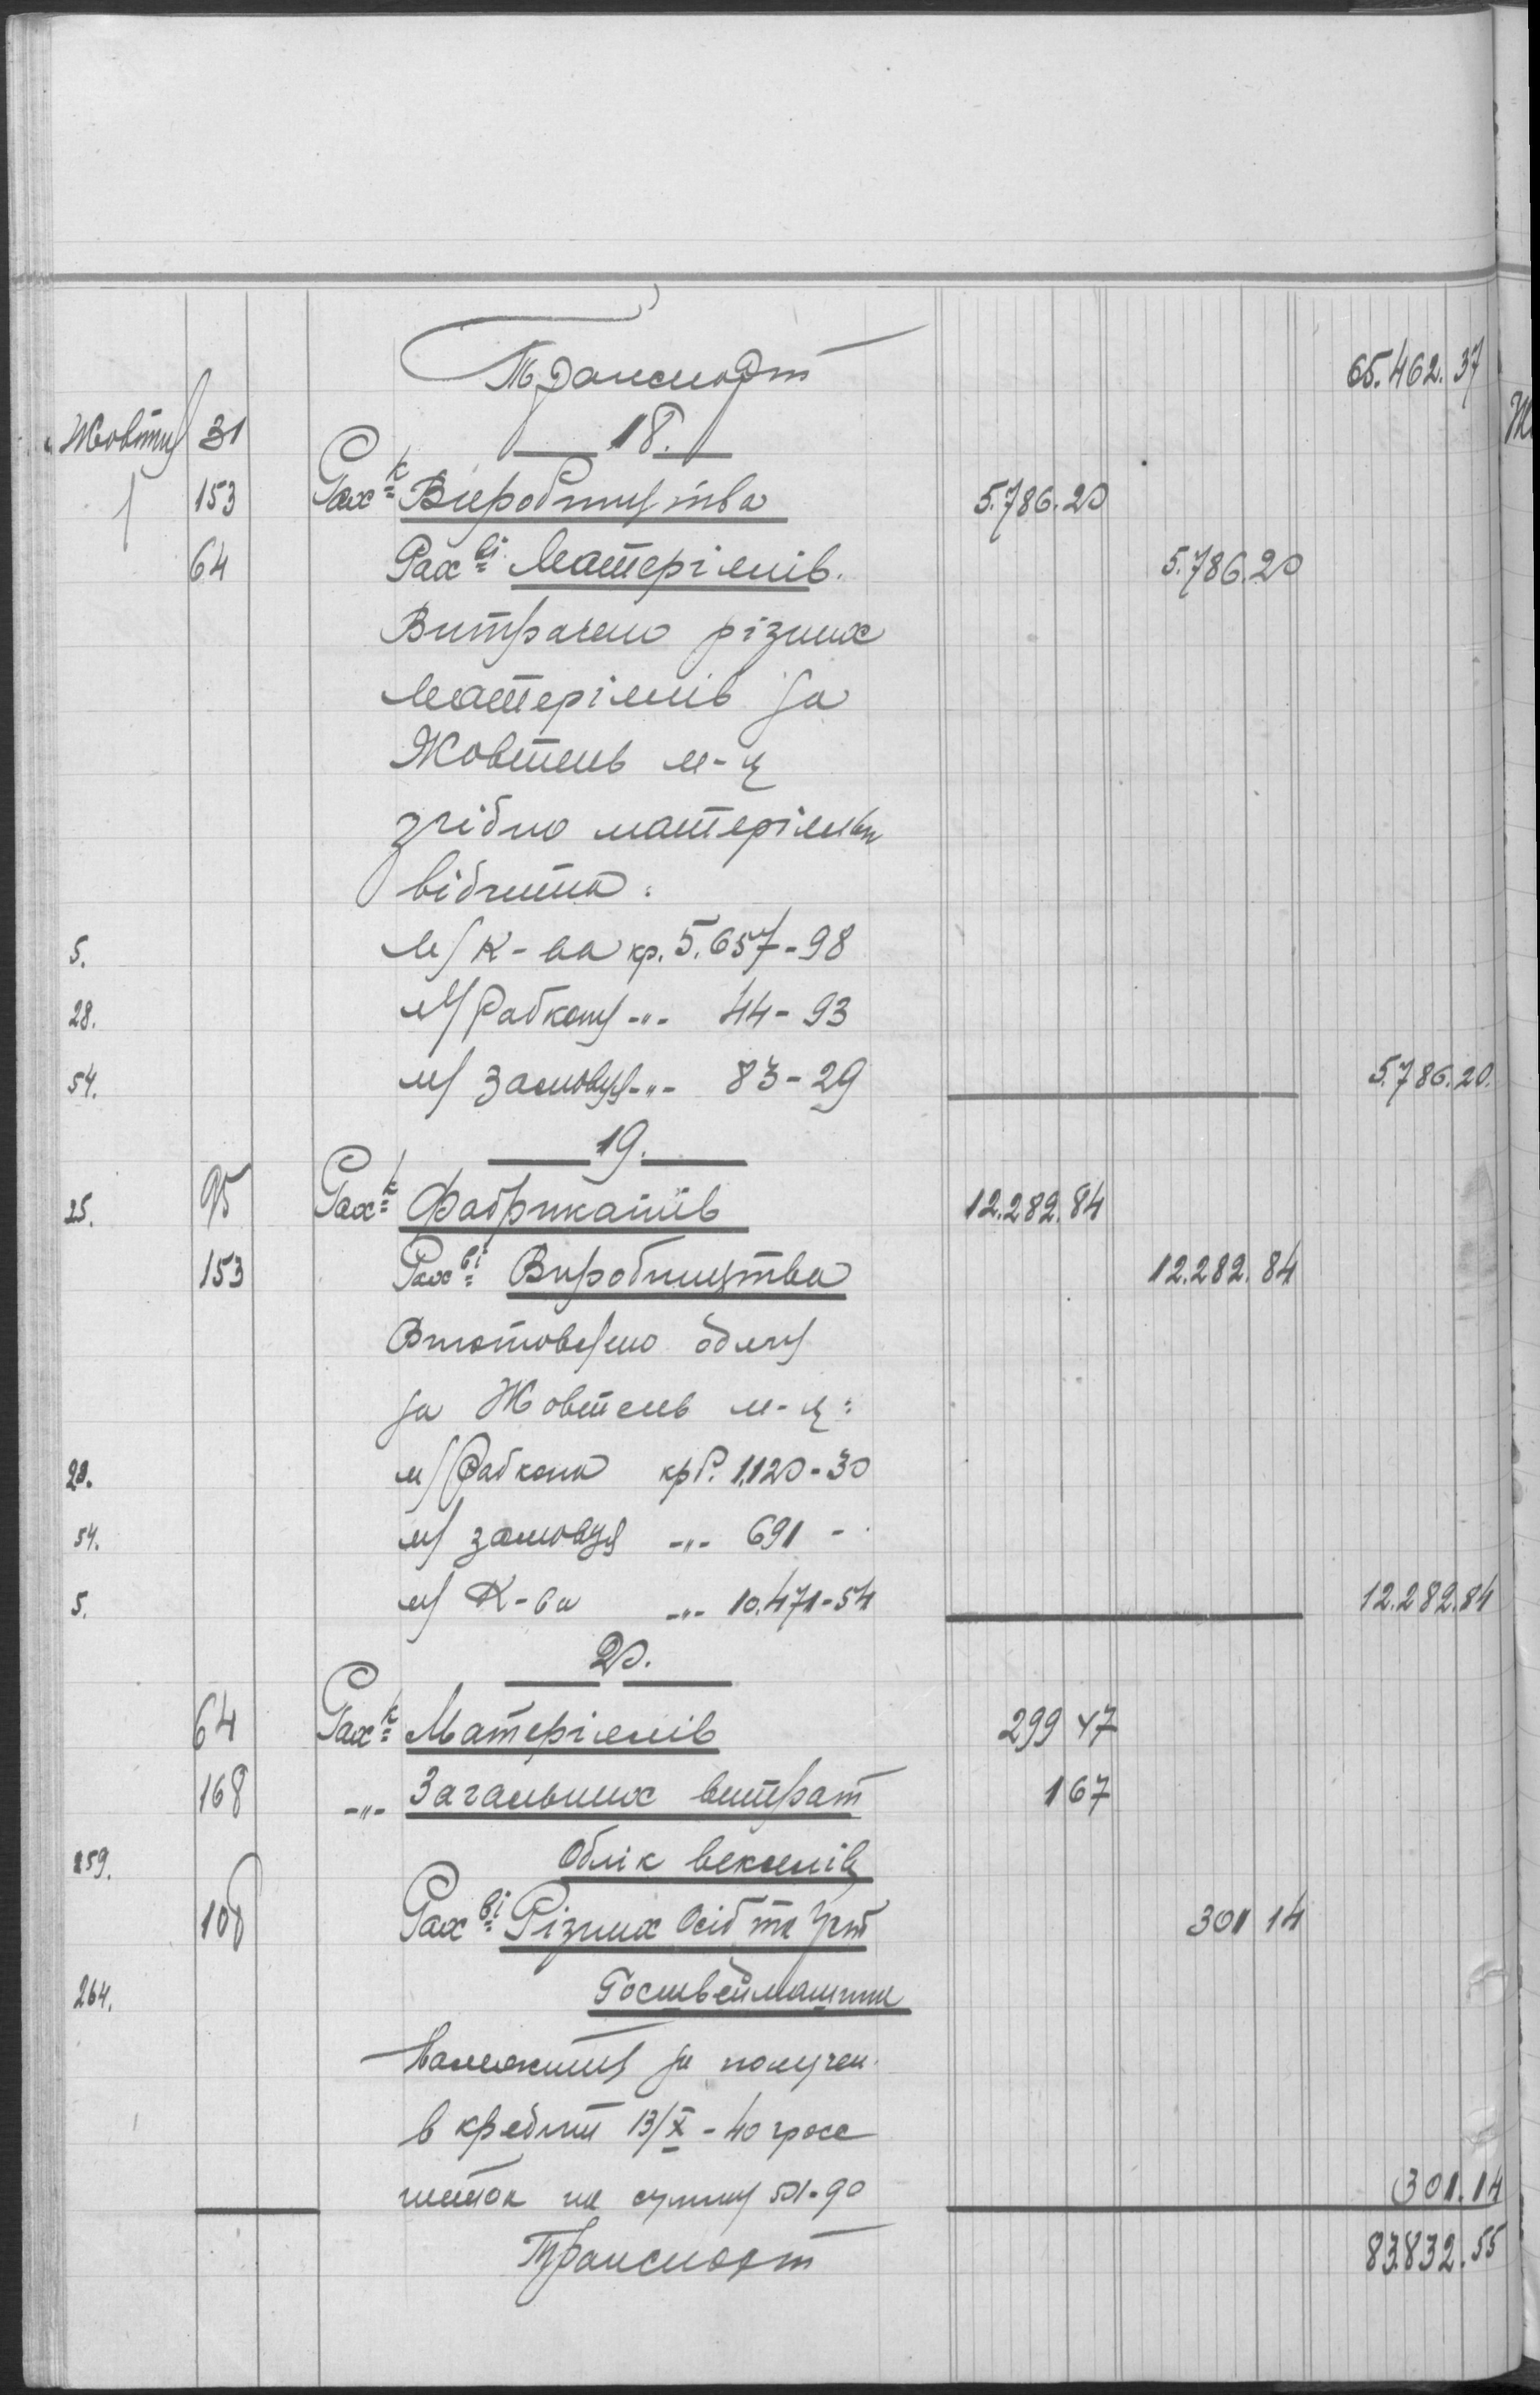 Транспорт 65.462.37
Жовтня 31 18.
153 Рах-к Виробництва 5.786.20
64 Рах-ві Матеріялів. 5.786.20
Витрачено різних
матеріялів за
Жовтень м-ц
згідно матеріяльн
відчита:
5. м/К-ва кр. 5.657-98
28. м/Рабкому -"- 44-93
54. м/замовця -"- 83-29 5.786.20.
19.
25. 95 Рах-к Фабрикатів 12.282.84
153 Рах-ві Виробництва 12.282.84
Виготовлено
за Жовтень м-ц:
28. м/Рабкома крб. 1.120-30
54. м/замовця -"- 691 -
5. м/К-ва -"- 10.471-54 12.282.84
20.
64 Рах-к Матеріялів 299 47
168 -"- Загальних витрат 1 67
259. Облік векселів
108 Рах-ві Різних Осіб та Уст 301 14
264. Госшвеймашини
Належить за получен.
в кредит 13/X - 40 грос
шток на сумму 501-90 301.14
Транспорт 83.832.55